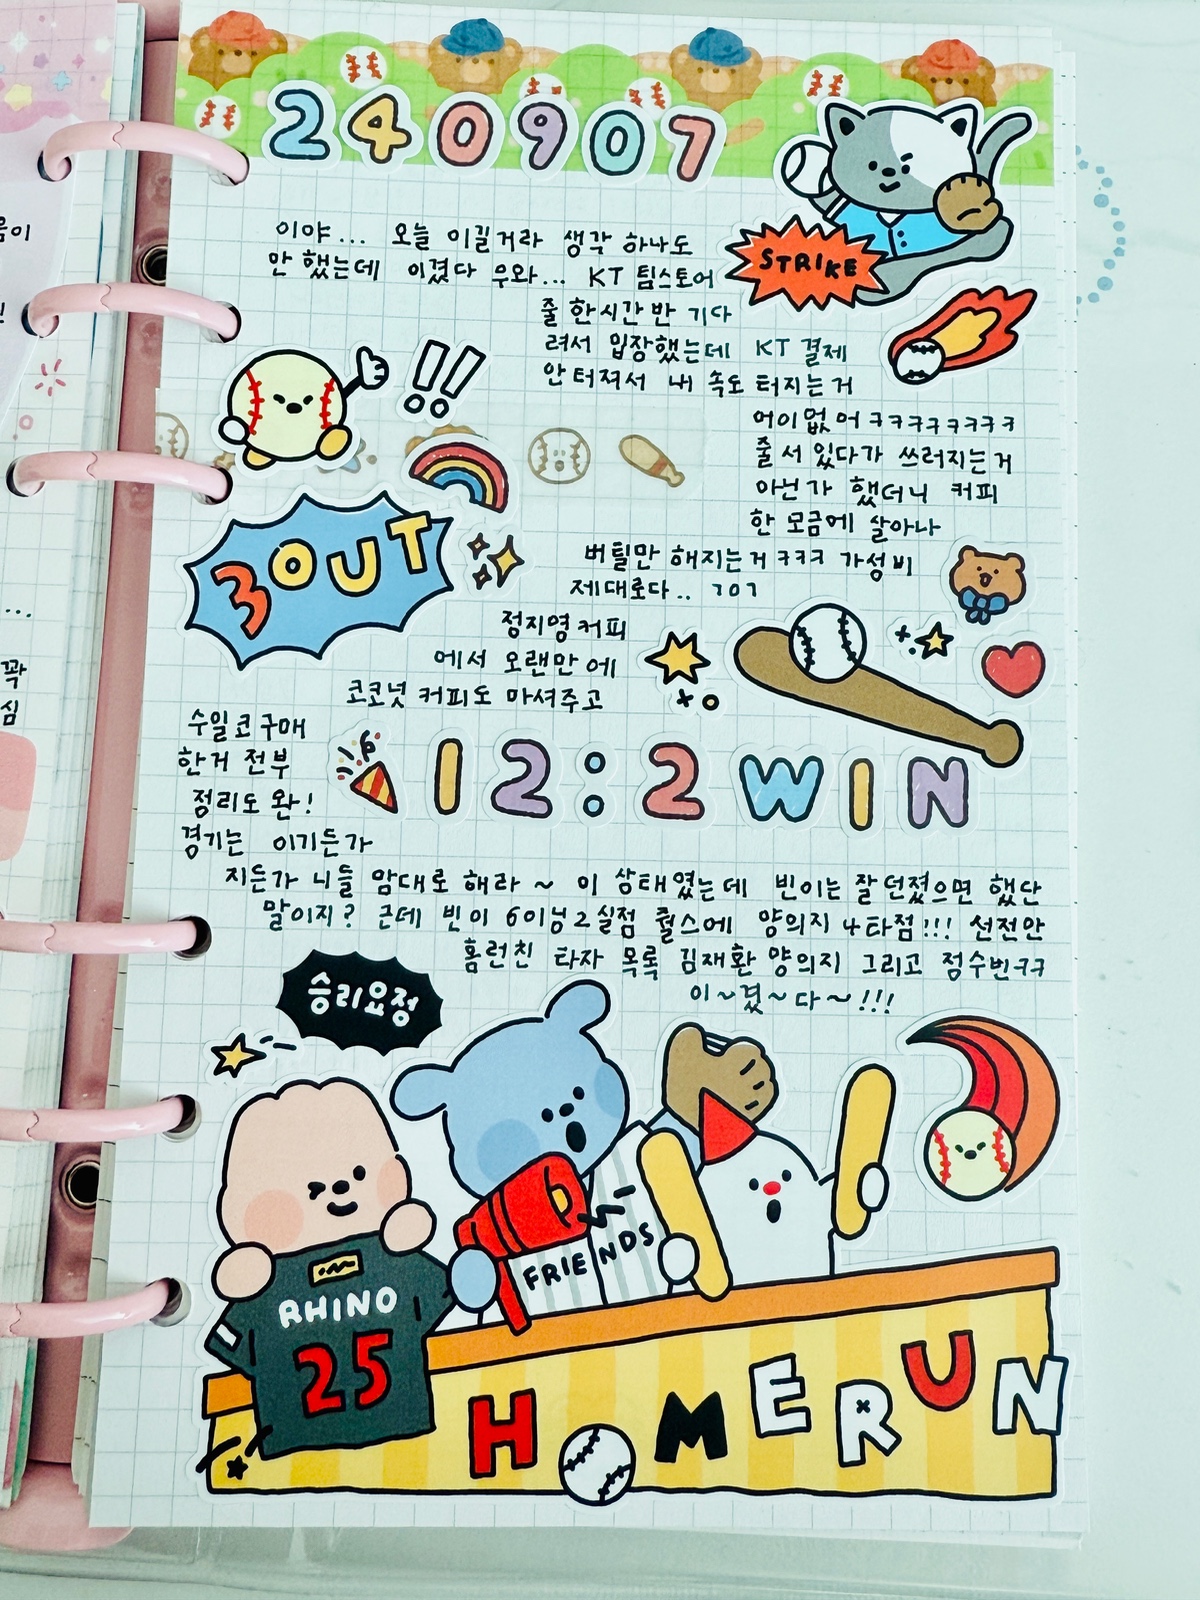 240907
이야... 오늘 이길거라 생각 하나도
안 했는데 이겼다 우와... KT 팀스토어
STRIKE
줄 한시간반 기다
려서 입장했는데 KT 결제
안터져서 내 속도 터지는거
어이없어ㅋㅋㅋㅋㅋㅋㅋㅋ
줄서있다가 쓰러지는거
아닌가 했더니 커피
한 모금에 살아나
버틸만 해지는거 ㅋㅋㅋ 가성비
제대로다.. ㄱㅇㄱ
3OUT
정지영커피
에서 오랜만에
코코넛 커피도 마셔주고
수일코구매
한거 전부
정리도 완!
12:2 WIN
경기는 이기든가
지든가 니들 맘대로 해라 ~ 이 상태였는데 빈이는 잘던졌으면 했단
말이지? 근데 빈이 6이닝2실점 퀄스에 양의지 4타점!!! 선전안
홈런친 타자 목록 김재환 양의지 그리고 점수빈ㅋㅋ
이~겼~다~!!!
승리요정
RHINO
25
FRIENDS
HOMERUN
음이
!
...
꽉
심